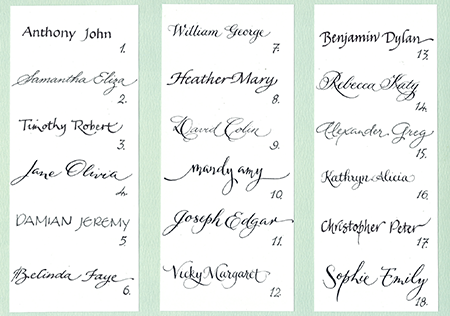 Anthony John
1.
Samantha Eliza
2.
Timothy Robert
3.
Jane Olivia
4.
DAMIAN JEREMY
5.
Belinda Faye
6.
William George
7.
Heather Mary
8.
David Colin
9.
mandy amy
10.
Joseph Edgar
11.
Vicky Margaret
12.
Benjamin Dylan
13.
Rebecca Katy
14.
Alexander Greg
15.
Kathryn Alicia
16.
Christopher Peter
17.
Sophie Emily
18.